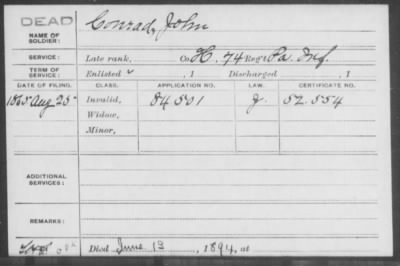 DEAD
NAME OF SOLDIER: Conrad, John
SERVICE: Late rank, Co. H. 74 Reg't Pa. Inf.
TERM OF SERVICE: Enlisted , 1 Discharged , 1
DATE OF FILING. CLASS. APPLICATION NO. LAW. CERTIFICATE NO.
1865 Aug 25 Invalid, 84.501 J. 52.554
Widow,
Minor,
ADDITIONAL SERVICES:
REMARKS:
Died June 13, 1894, at